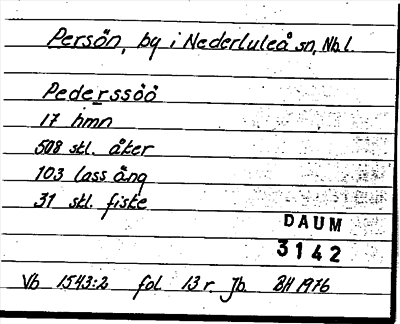 Persön, by i Nederluleå sn, Nbl.
Pederssöö
17 hmn
508 stl. åker
103 lass äng
31 stl. fiske
DAUM
3142
Vb 1543:2 fol 13 r. Jb. BH 1976